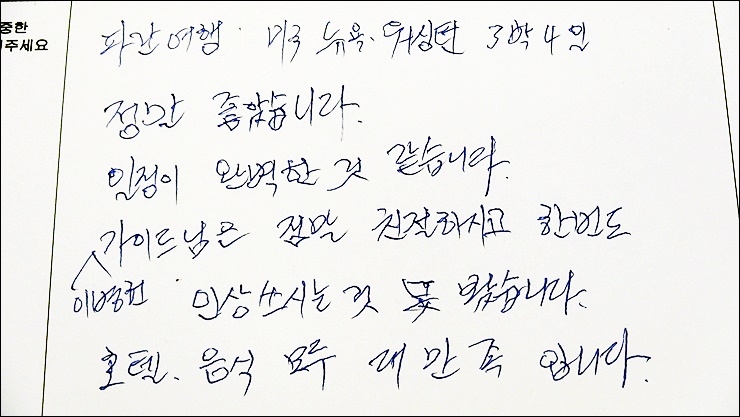 중한
주세요
파란여행. 미국 뉴욕. 워싱턴 3박4일
정말 좋았습니다.
일정이 완벽한 것 같습니다.
가이드님은 정말 친절하시고 한번도
이병헌 인상쓰시는것 못 봤습니다.
호텔. 음식 모두 대만족 입니다.